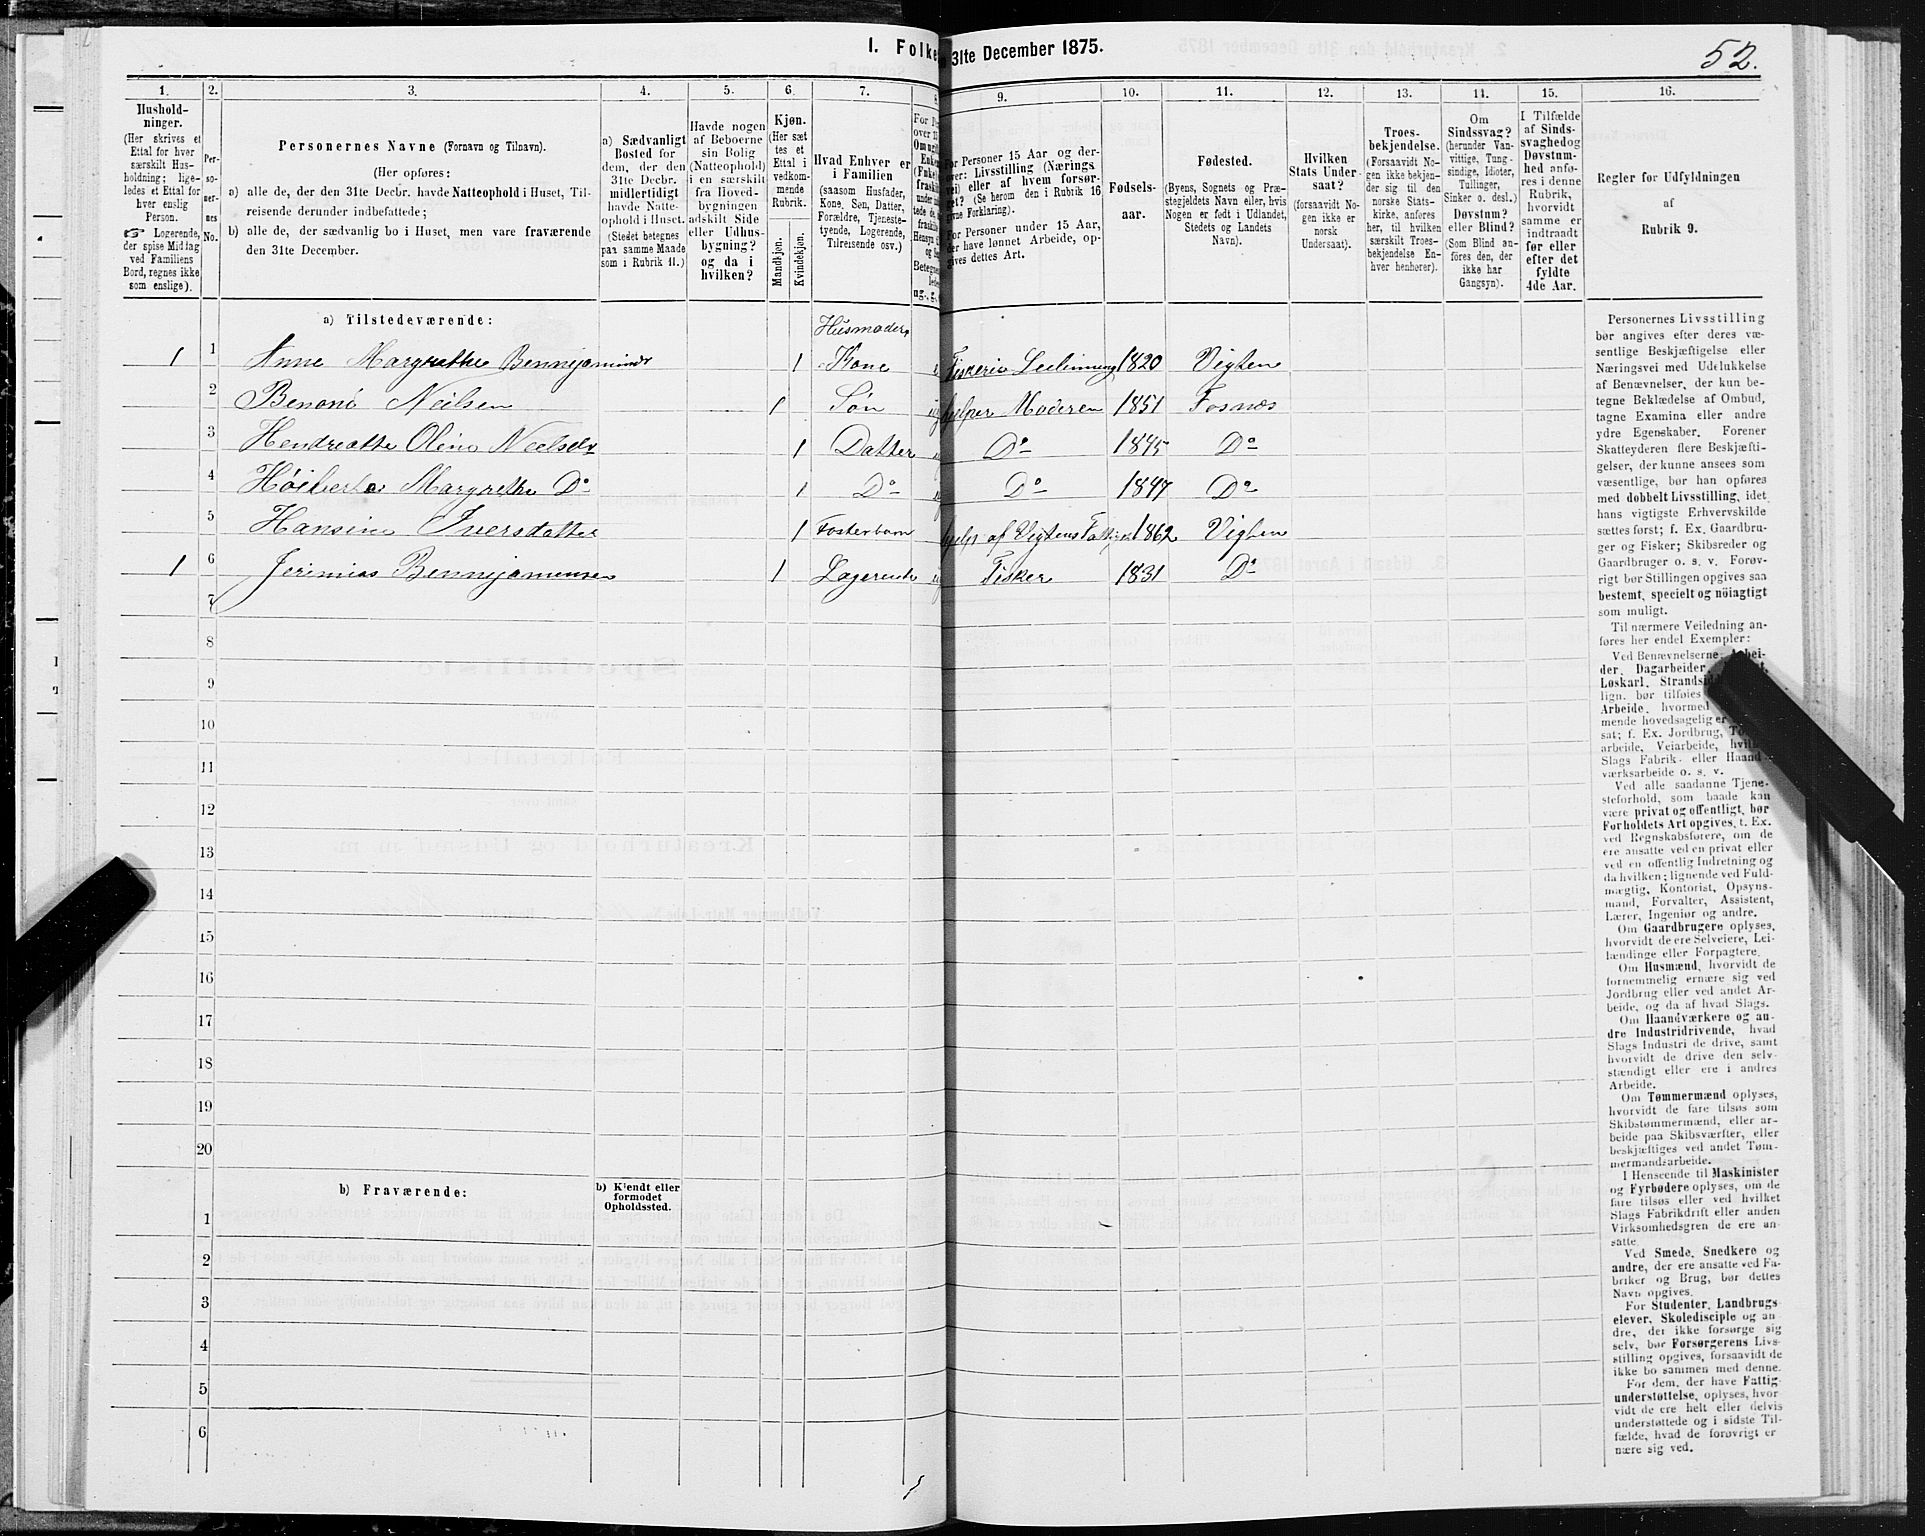 52.
I. Folke
31te December 1875.
1.
2.
3.
4.
5.
6.
7.
8.
9.
10.
11.
12.
13.
14.
15.
16.
Hushold-
ninger.
(Her skrives et
Ettal for hver
særskilt Hus-
holdning; lige-
ledes et Ettal for
hver enslig
Person.
☞ Logerende,
der spise Middag
ved Familiens
Bord, regnes ikke
som enslige).
Per-
so-
ner-
nes
No.
Personernes Navne (Fornavn og Tilnavn).
(Her opføres:
a) alle de, der den 31te Decbr. havde Natteophold i Huset, Til-
reisende derunder indbefattede;
b) alle de, der sædvanlig bo i Huset, men vare fraværende
den 31te December.
a) Sædvanligt
Bosted for
dem, der den
31te Decbr.
midlertidigt
havde Natte-
ophold i Huset.
(Stedet betegnes
paa samme Maade
som i Rubrik 11.)
Havde nogen
af Beboerne
sin Bolig
(Natteophold)
i en særskilt
fra Hoved-
bygningen
adskilt Side
eller Udhus-
bygning?
og da i
hvilken?
Kjøn.
(Her sæt
tes et
Ettal i
vedkom-
mende
Rubrik.
Mandkjøn.
Kvindekjøn.
Hvad Enhver er
i Familien
(saasom Husfader,
Kone, Søn, Datter,
Forældre, Tjeneste-
tyende, Logerende,
Tilreisende osv.)
For Personer 15 Aar og der-
over: Livsstilling (Nærings
vei) eller af hvem forsør-
get? (Se herom den i Rubrik 16
givne Forklaring).
For Personer under 15 Aar,
der have lønnet Arbeide, op-
gives dettes Art.
Fødsels-
aar.
Fødested.
(Byens, Sognets og Præ-
stegjeldets Navn eller, hvis
Nogen er født i Udlandet,
Stedets og Landets
Navn).
Hvilken
Stats Under-
saat?
(forsaavidt No-
gen ikke er
norsk
Undersaat).
Troes-
bekjendelse.
(Forsaavidt No-
gen ikke bekjen-
der sig til den
norske Stats-
kirke, anføres
her, til hvilken
særskilt Troes-
bekjendelse En-
hver henhører).
Om
Sindssvag?
(herunder Van-
vittige, Tung-
sindige, Idioter,
Tullinger,
Sinker o. desl.)
Døvstum?
eller Blind?
(Som Blind an-
føres den, der
ikke har
Gangsyn).
I Tilfælde
af Sinds-
svaghed og
Døvstum-
hed anfø-
res i denne
Rubrik,
hvorvidt
samme er
indtraadt
før eller
efter det
fyldte
4de Aar.
Regler for Udfyldningen
af
Rubrik 9.
a) Tilstedeværende:
Husmoder
1 1 Anne Margrethe Bennijamind 1 Kone Fiskerie 1820 Vigten
2 Benoni Neilsen 1 Søn hjelper Moderen 1851 Fosnæs
3 Hendreatte Olina Neelsdr 1 Datter Do 1845 Do
4 Høiberta Margrethe Do 1 Do Do 1847 Do
5 Hansine Iversdatter 1 Fosterbarn hjelp af Vigtens 1862 Vigten
1 6 Jerimias Bennijamensen 1 Logerende Fisker 1831 Do
7
8
9
10
11
12
13
14
15
16
17
18
19
20
b) Fraværende:
b) Kjendt eller
formodet
Opholdssted.
1
2
3
4
5
6
Personernes Livsstilling
bør angives efter deres væ-
sentlige Beskjæftigelse eller
Næringsvei med Udelukkelse
af Benævnelser, der kun be-
tegne Beklædelse af Ombud,
tagne Examina eller andre
ydre Egenskaber. Forener
Skatteyderen flere Beskjæfti-
gelser, der kunne ansees som
væsentlige, bør han opføres
med dobbelt Livsstilling, idet
hans vigtigste Erhvervskilde
sættes først; f. Ex. Gaardbru-
ger og Fisker; Skibsreder og
Gaardbruger o. s. v. Forøv-
rigt bør Stillingen opgives saa
bestemt, specielt og nøiagtigt
som muligt.
Til nærmere Veiledning an-
føres her endel Exempler:
Ved Benævnelserne: Arbei-
der, Dagarbeider,
Løskarl, Strandsid
lign. bør tilføies
Arbeide, hvormed
mende hovedsagelig er
sat; f. Ex. Jordbrug, To
arbeide, Veiarbeide, hvil
Slags Fabrik- eller Haand-
værksarbeide o. s. v.
Ved alle saadanne Tjene-
steforhold, som baade kan
være privat og offentligt, bør
Forholdets Art opgives, t. Ex.
ved Regnskabsførere, om de
ere ansatte ved en privat eller
ved en offentlig Indretning og
da hvilken; lignende ved Fuld-
mægtig, Kontorist, Opsyns-
mand, Forvalter, Assistent,
Lærer, Ingeniør og andre.
Om Gaardbrugere oplyses,
hvorvidt de ere Selveiere, Lei-
lændinge eller Forpagtere.
Om Husmænd, hvorvidt de
fornemmelig ernære sig ved
Jordbrug eller ved andet Ar-
beide, og da af hvad Slags.
Om Haandværkere og an-
dre Industridrivende, hvad
Slags Industri de drive, samt
hvorvidt de drive den selv-
stændigt eller ere i andres
Arbeide.
Om Tømmermænd oplyses,
hvorvidt de fare tilsøs som
Skibstømmermænd, eller ar-
beide paa Skibsværfter, eller
beskjæftiges ved andet Tøm-
mermandsarbeide.
I Henseende til Maskinister
og Fyrbødere oplyses, om de
fare tilsøs eller ved hvilket
Slags Fabrikdrift eller anden
Virksomhedsgren de ere an-
satte.
Ved Smede, Snedkere og
andre, der ere ansatte ved Fa-
briker og Brug, bør dettes
Navn opgives.
For Studenter, Landbrugs-
elever, Skoledisciple og an-
dre, der ikke forsørge sig
selv, bør Forsørgerens Livs-
stilling opgives, forsaavidt de
ikke bo sammen med denne.
For dem, der have Fattig-
understøttelse, oplyses, hvor-
vidt de ere helt eller delvis
understøttede og i sidste Til-
fælde, hvad de forøvrigt er
nære sig ved.